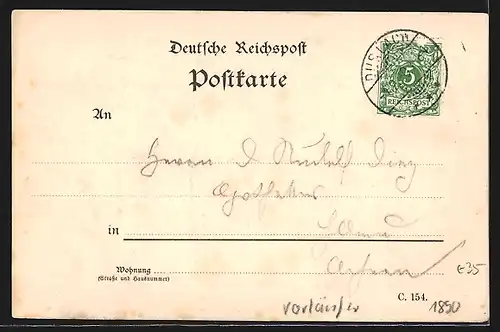 Deutsche Reichspost
Postkarte
DURLACH
5
REICHSPOST
An
Herrn
Apotheker
in
Wohnung
(Straße und Hausnummer)
C. 154.
€35
Vorläufer 1890